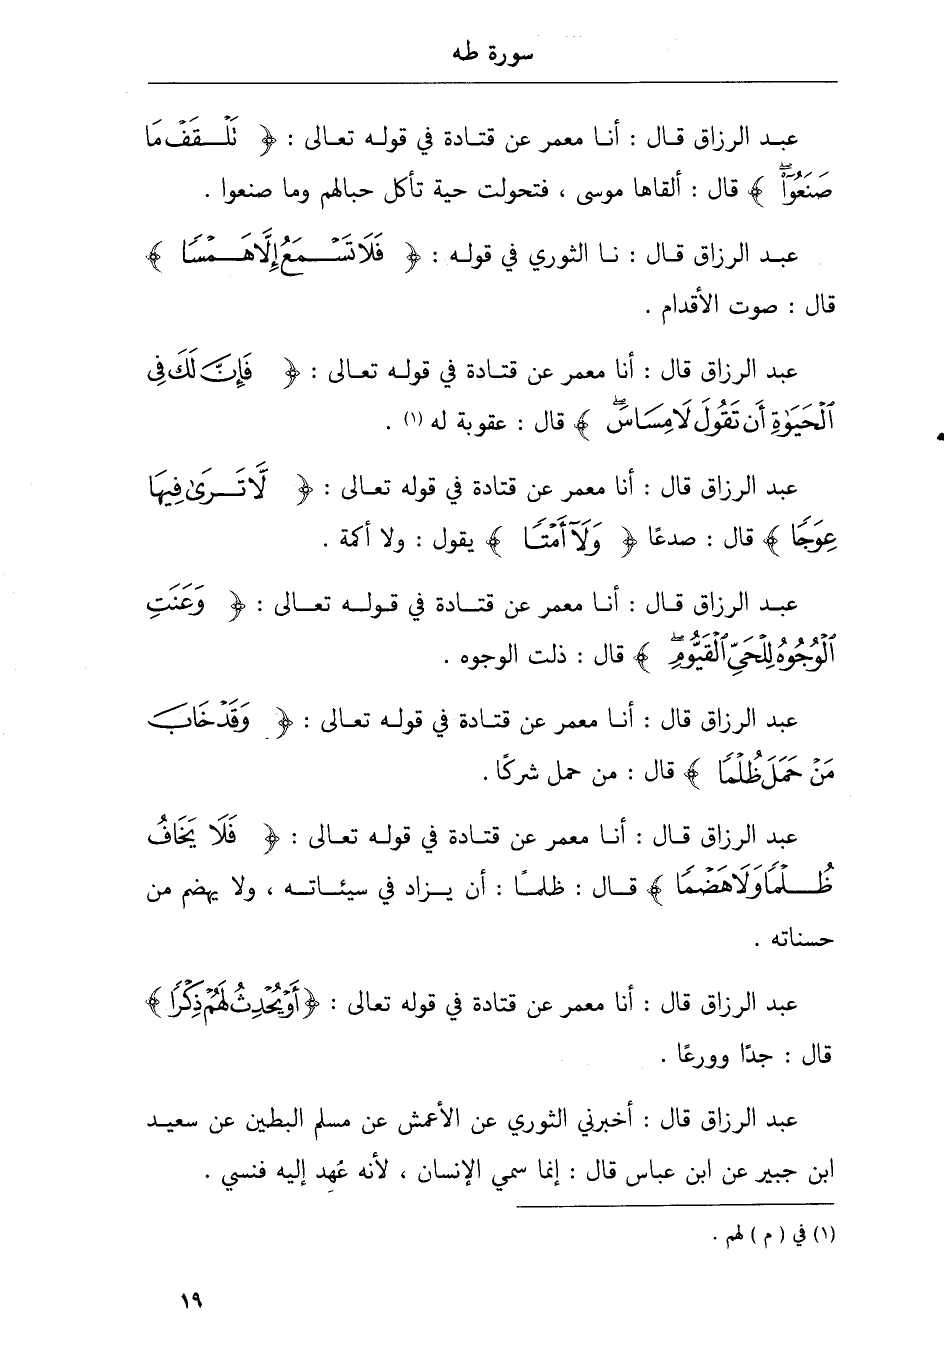 سورة طه
عبد الرزاق قال : أنا معمر عن قتادة في قوله تعالى : ﴿ تَلْقَفْ مَا
صَنَعُوٓا۟ۖ ﴾ قال : ألقاها موسى ، فتحولت حية تأكل حبالهم وما صنعوا .
عبد الرزاق قال : نا الثوري في قوله : ﴿ فَلَا تَسْمَعُ إِلَّا هَمْسًا ﴾
قال : صوت الأقدام .
عبد الرزاق قال : أنا معمر عن قتادة في قوله تعالى : ﴿ فَإِنَّ لَكَ فِى
ٱلْحَيَوٰةِ أَن تَقُولَ لَا مِسَاسَۖ ﴾ قال : عقوبة له (١) .
عبد الرزاق قال : أنا معمر عن قتادة في قوله تعالى : ﴿ لَّا تَرَىٰ فِيهَا
عِوَجًا ﴾ قال : صدعًا ﴿ وَلَآ أَمْتًا ﴾ يقول : ولا أكمة .
عبد الرزاق قال : أنا معمر عن قتادة في قوله تعالى : ﴿ وَعَنَتِ
ٱلْوُجُوهُ لِلْحَىِّ ٱلْقَيُّومِۖ ﴾ قال : ذلت الوجوه .
عبد الرزاق قال : أنا معمر عن قتادة في قوله تعالى : ﴿ وَقَدْ خَابَ
مَنْ حَمَلَ ظُلْمًا ﴾ قال : من حمل شركًا .
عبد الرزاق قال : أنا معمر عن قتادة في قوله تعالى : ﴿ فَلَا يَخَافُ
ظُلْمًا وَلَا هَضْمًا ﴾ قال : ظلمًا : أن يزاد في سيئاته ، ولا يهضم من
حسناته .
عبد الرزاق قال : أنا معمر عن قتادة في قوله تعالى : ﴿ أَوْ يُحْدِثُ لَهُمْ ذِكْرًا ﴾
قال : جدًا وورعًا .
عبد الرزاق قال : أخبرني الثوري عن الأعمش عن مسلم البطين عن سعيد
ابن جبير عن ابن عباس قال : إنما سمي الإنسان ، لأنه عُهِد إليه فنسي .
(١) في ( م ) لهم .
١٩